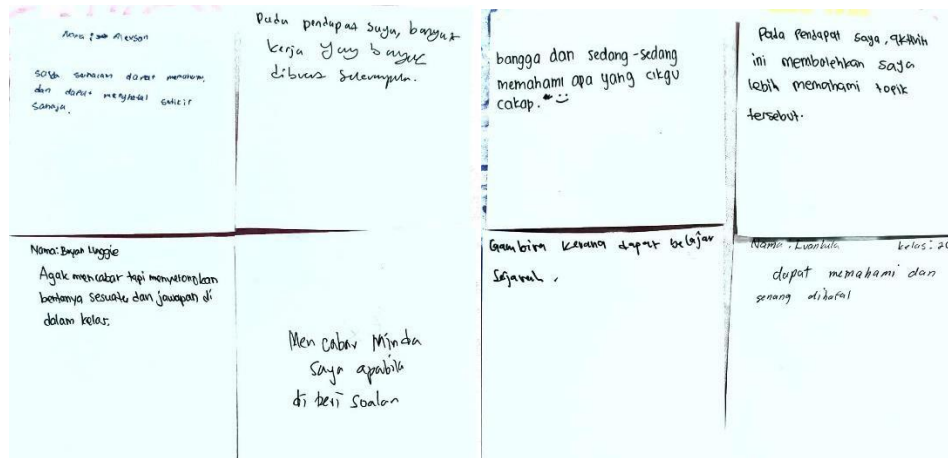 saya
dan dapat menghafal sedikit
sahaja.
Pada pendapat saya, banyak
kerja yang banyak
dibuat
bangga dan sedang-sedang
memahami apa yang cikgu
cakap.
Pada Pendapat saya, aktiviti
ini membolehkan saya
lebih memahami topik
tersebut.
Nama: Bayah Unggie
Agak mencabar tapi menyeronokkan
bertanya sesuatu dan jawapan di
dalam kelas.
Mencabar Minda
saya apabila
di beri soalan
Gambira kerana dapat belajar
Sejarah.
Nama: kelas:
dapat memahami dan
senang dihafal